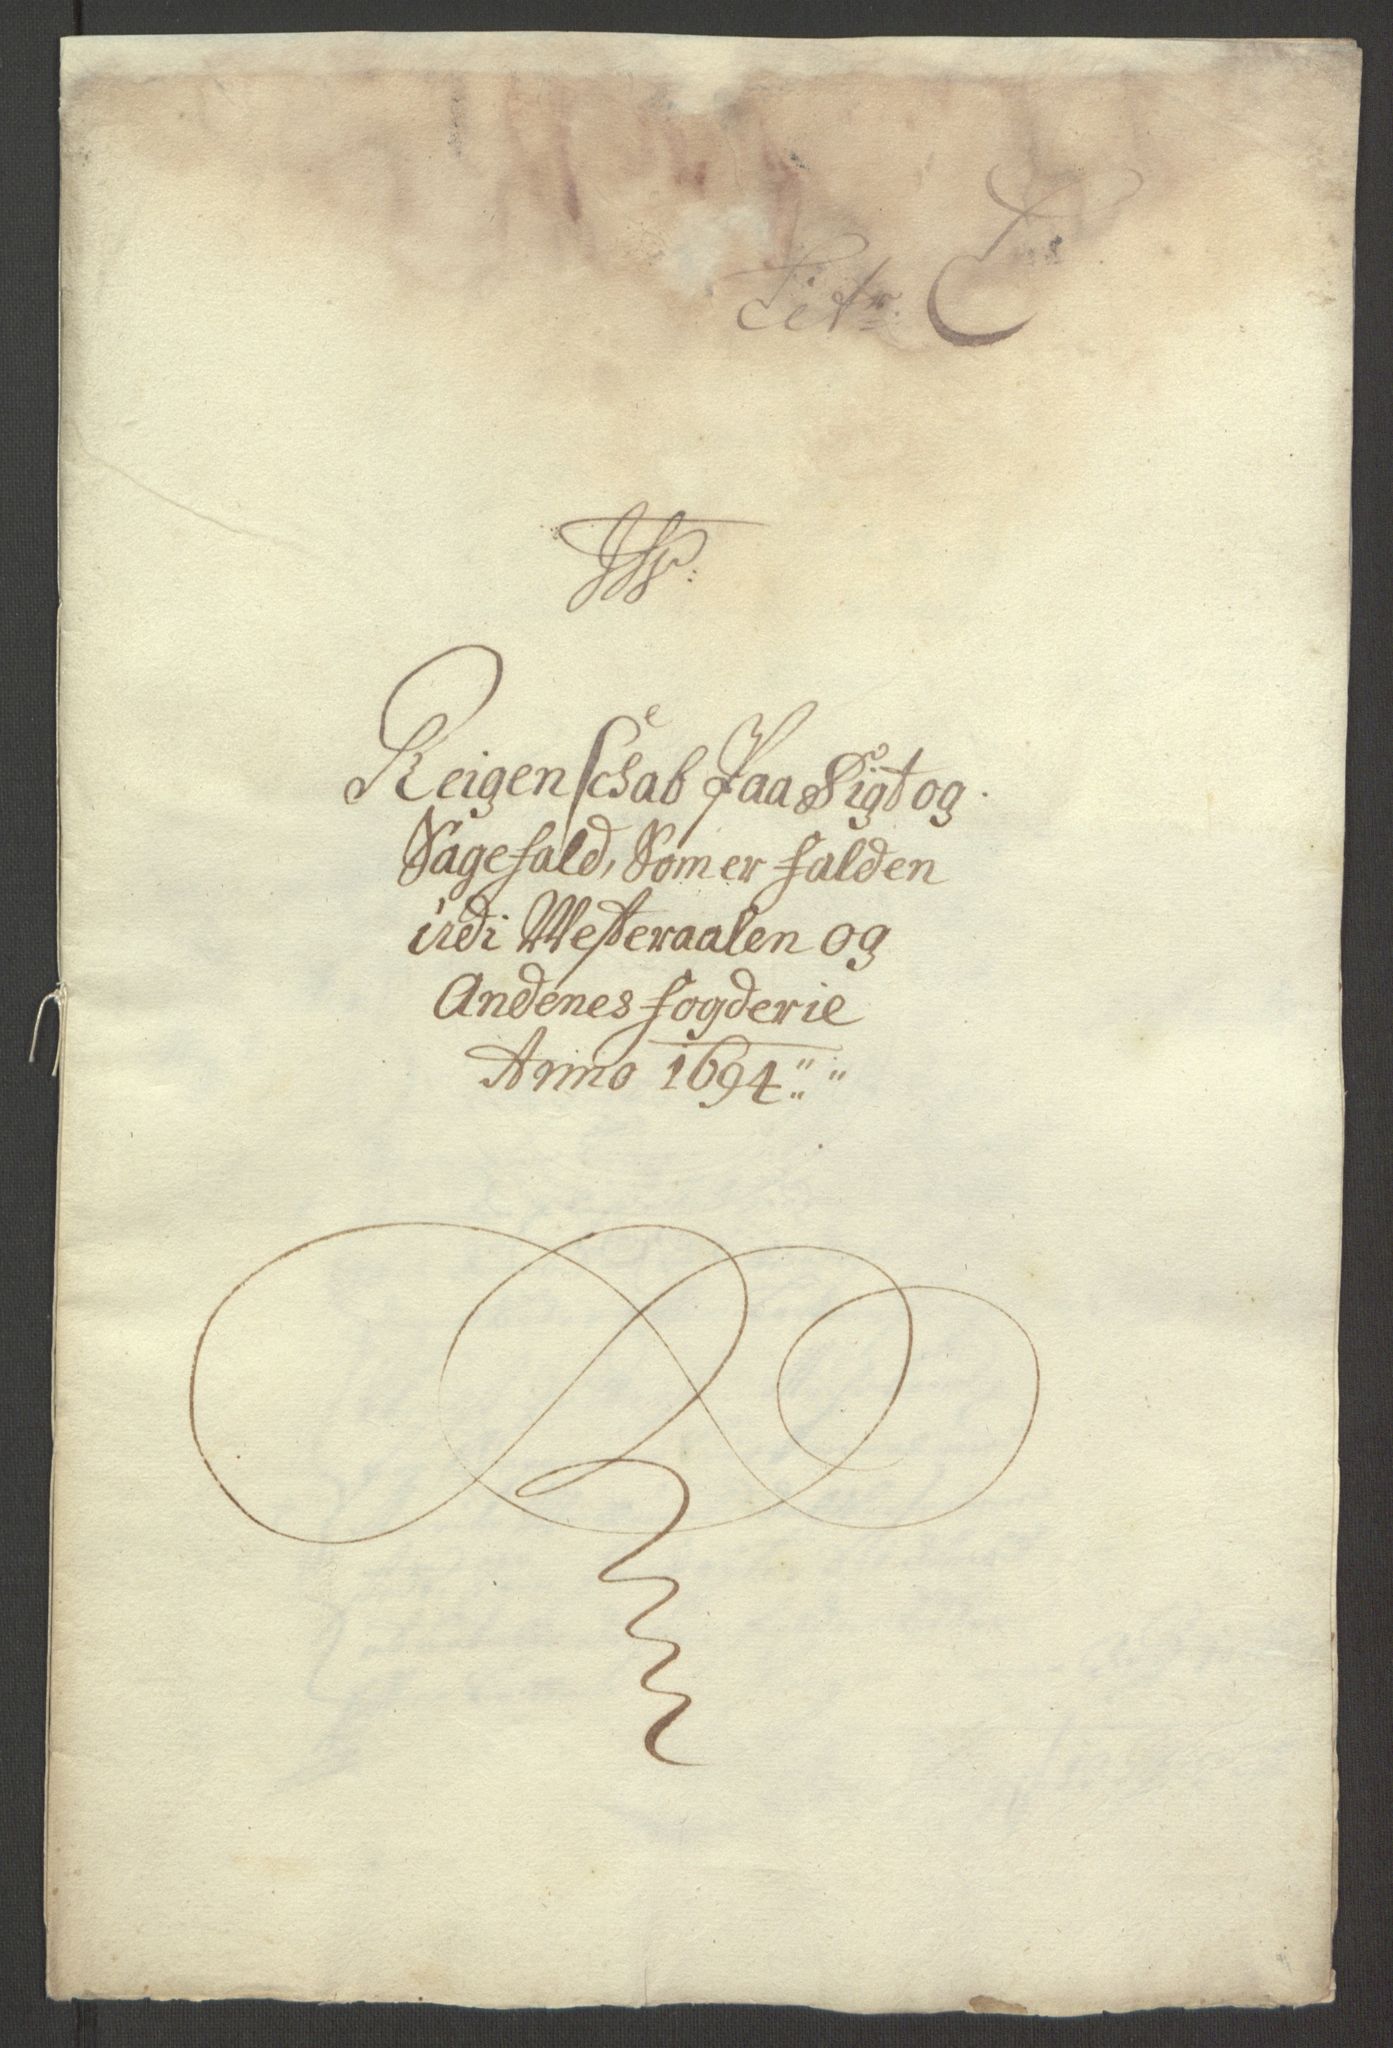 Litr: C
Reigenschab Paa Sigt og
Sagefald, Som er falden
udi Westeraalen og
Andenes fogderie
Anno 1694